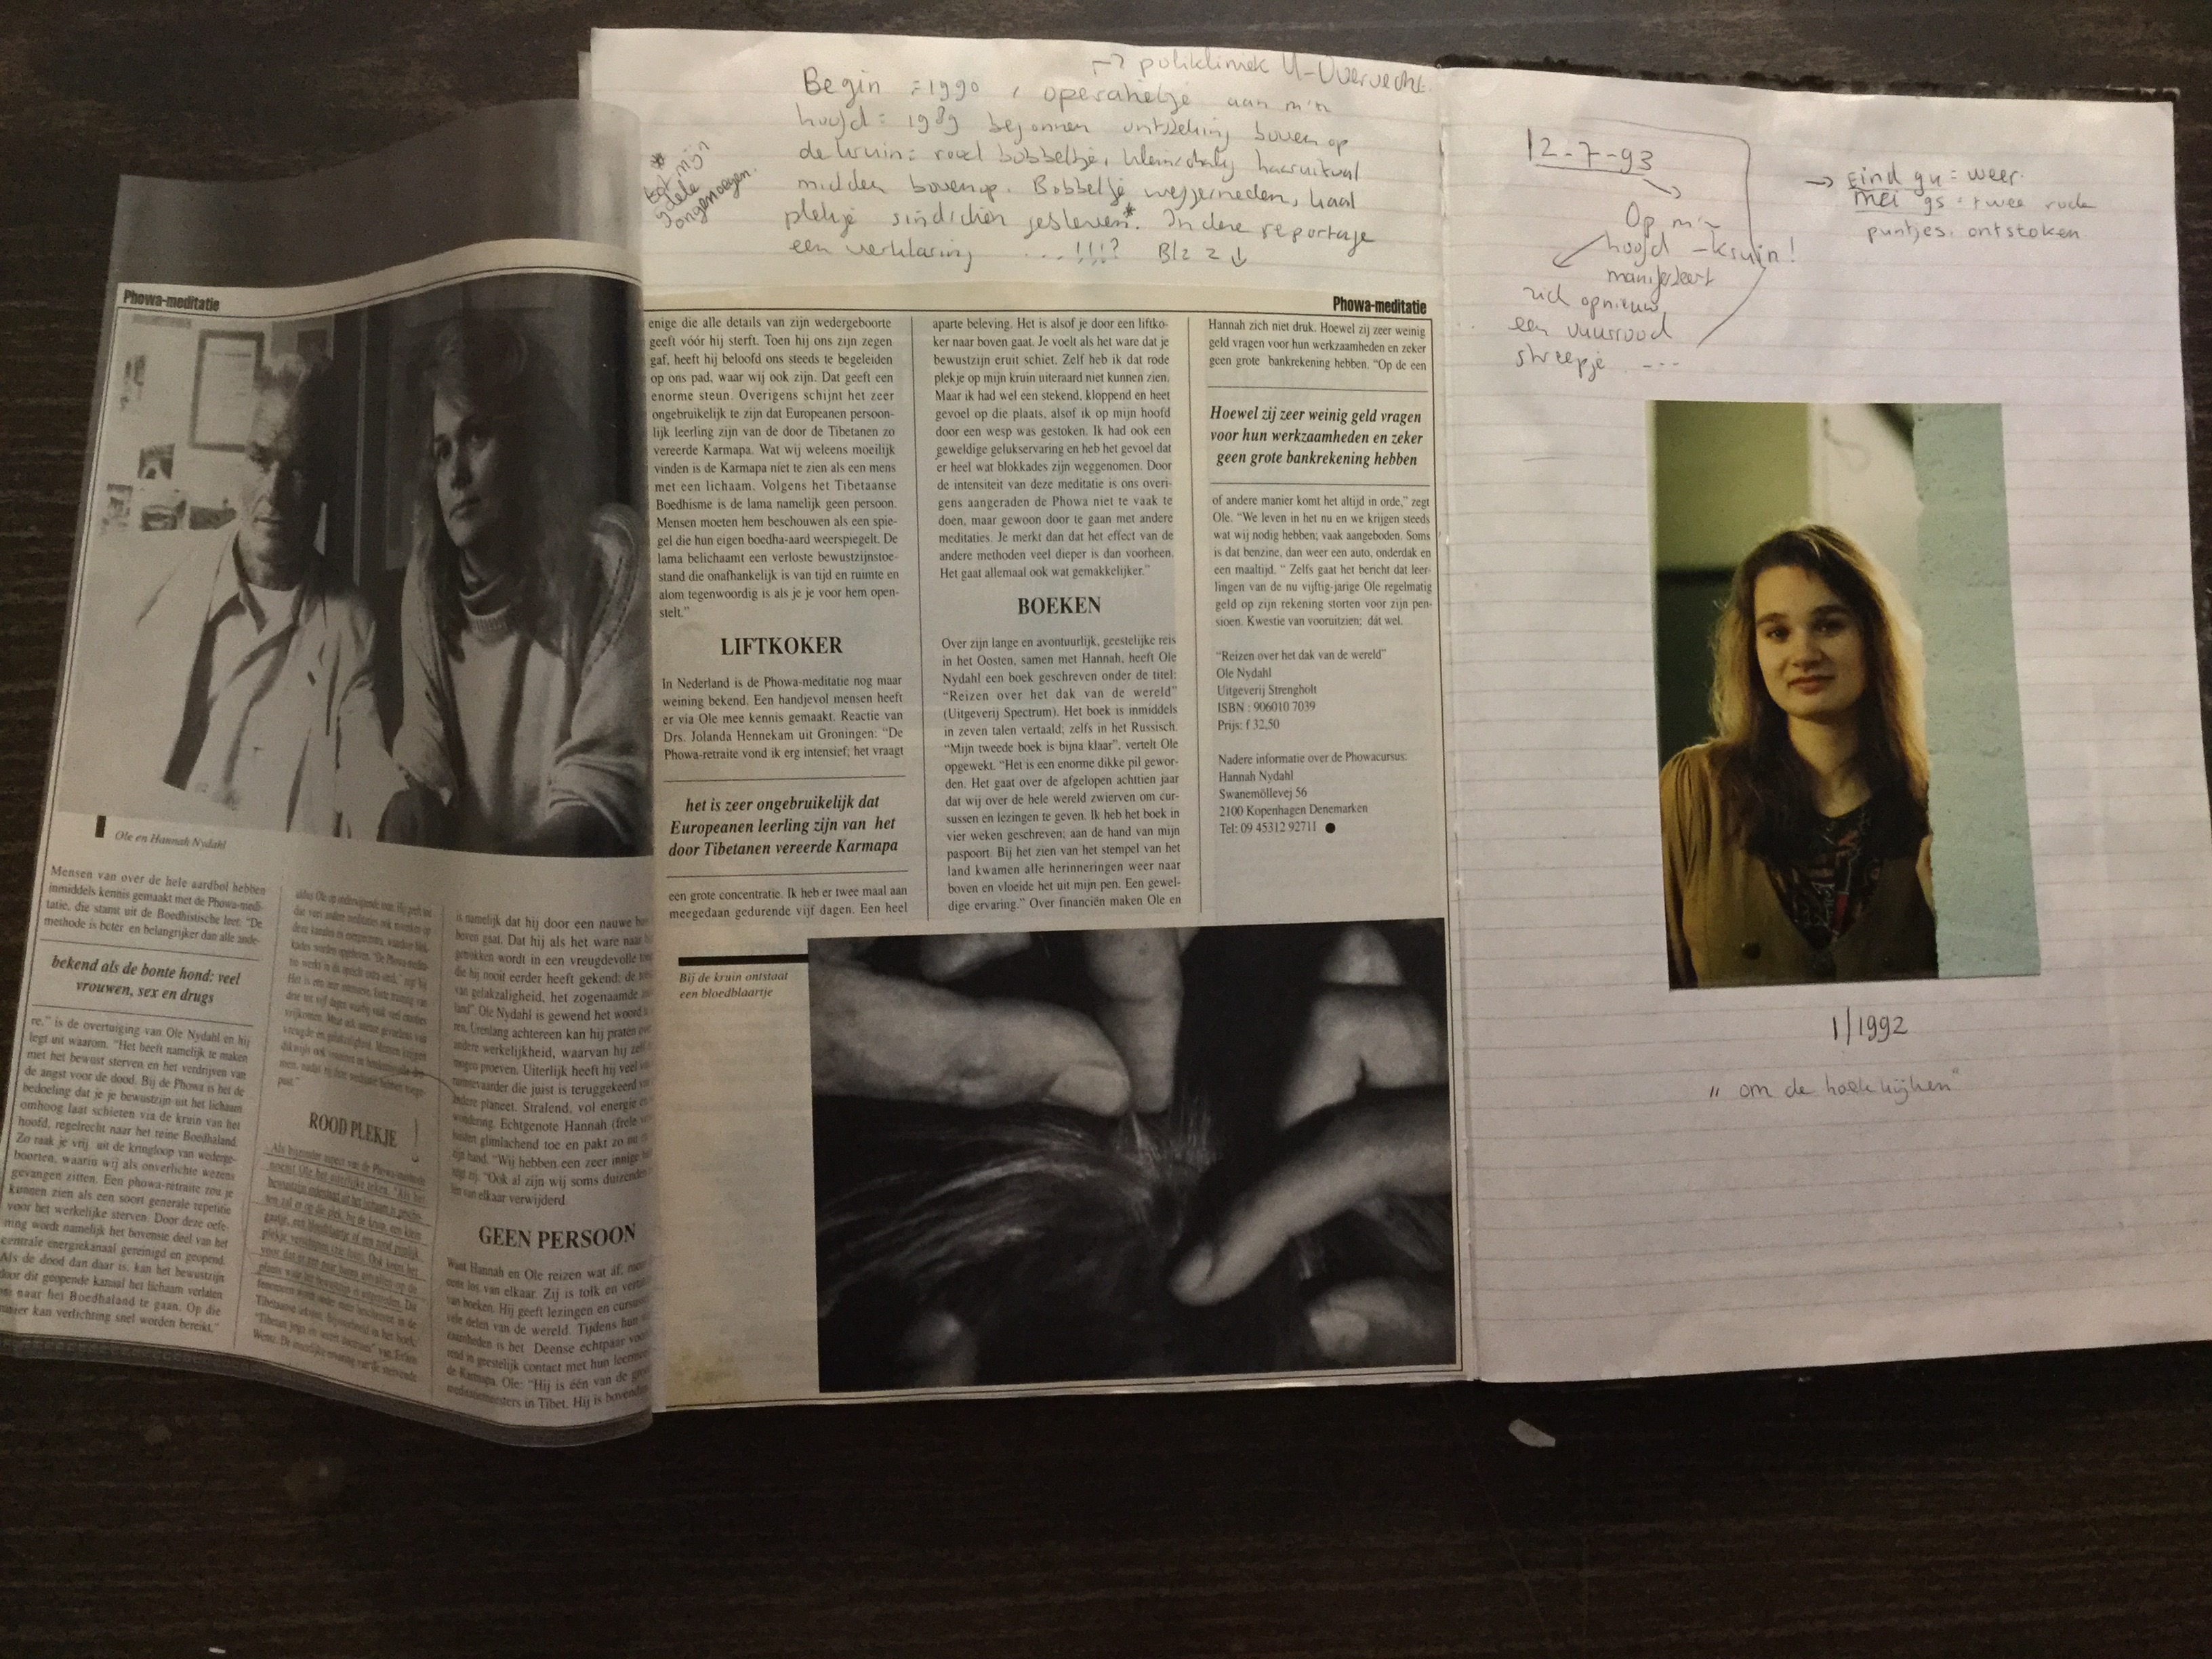 → polikliniek U-Overvecht.
Begin = 1990, operatietje aan m'n
hoofd = 1989 begonnen ontsteking boven op
de kruin: rood bobbeltje, kleinschalig haaruitval
midden bovenop. Bobbeltje weggesneden, kaal
plekje sindsdien gebleven*. In deze reportage
een verklaring ....!!!? Blz 2 ↓
*
tot mijn
ongenoegen.
Phowa-meditatie
Ole en Hannah Nydahl
Mensen van over de hele aardbol hebben
inmiddels kennis gemaakt met de Phowa-medi-
tatie, die stamt uit de Boedhistische leer. "De
methode is beter en belangrijker dan alle ande-
bekend als de bonte hond: veel
vrouwen, sex en drugs
re." is de overtuiging van Ole Nydahl en hij
legt uit waarom. "Het heeft namelijk te maken
met het bewust sterven en het verdrijven van
de angst voor de dood. Bij de Phowa is het de
bedoeling dat je je bewustzijn uit het lichaam
omhoog laat schieten via de kruin van het
hoofd, regelrecht naar het reine Boedhaland.
Zo raak je vrij uit de kringloop van wederge-
boorten, waarin wij als onverlichte wezens
gevangen zitten. Een phowa-retraite zou je
kunnen zien als een soort generale repetitie
voor het werkelijke sterven. Door deze oefe-
ning wordt namelijk het bovenste deel van het
centrale energiekanaal gereinigd en geopend.
Als de dood dan daar is, kan het bewustzijn
door dit geopende kanaal het lichaam verlaten
naar het Boedhaland te gaan. Op die
manier kan verlichting snel worden bereikt."
ROOD PLEKJE !
is namelijk dat hij door een nauwe
boven gaat. Dat hij als het ware naar
getrokken wordt in een vreugdevolle
die hij nooit eerder heeft gekend: de
van gelukzaligheid, het zogenaamde
land". Ole Nydahl is gewend het woord
ren. Urenlang achtereen kan hij praten over
andere werkelijkheid, waarvan hij
mogen proeven. Uiterlijk heeft hij veel
ruimtevaarder die juist is teruggekeerd
andere planeet. Stralend, vol energie
wondering. Echtgenote Hannah
glimlachend toe en pakt zo nu
zijn hand. "Wij hebben een zeer innige
zegt zij. "Ook al zijn wij soms duizenden
van elkaar verwijderd.
GEEN PERSOON
Want Hannah en Ole reizen wat áf,
eens los van elkaar. Zij is tolk en
van boeken. Hij geeft lezingen en
vele delen van de wereld. Tijdens hun
zaamheden is het Deense echtpaar
rend in geestelijk contact met hun
de Karmapa. Ole: "Hij is één van de
meditatiemeesters in Tibet. Hij is bovendien
Phowa-meditatie
enige die alle details van zijn wedergeboorte
geeft vóór hij sterft. Toen hij ons zijn zegen
gaf, heeft hij beloofd ons steeds te begeleiden
op ons pad, waar wij ook zijn. Dat geeft een
enorme steun. Overigens schijnt het zeer
ongebruikelijk te zijn dat Europeanen persoon-
lijk leerling zijn van de door de Tibetanen zo
vereerde Karmapa. Wat wij weleens moeilijk
vinden is de Karmapa níet te zien als een mens
met een lichaam. Volgens het Tibetaanse
Boedhisme is de lama namelijk geen persoon.
Mensen moeten hem beschouwen als een spie-
gel die hun eigen boedha-aard weerspiegelt. De
lama belichaamt een verloste bewustzijnstoe-
stand die onafhankelijk is van tijd en ruimte en
alom tegenwoordig is als je je voor hem open-
stelt."
LIFTKOKER
In Nederland is de Phowa-meditatie nog maar
weining bekend. Een handjevol mensen heeft
er via Ole mee kennis gemaakt. Reactie van
Drs. Jolanda Hennekam uit Groningen: "De
Phowa-retraite vond ik erg intensief; het vraagt
het is zeer ongebruikelijk dat
Europeanen leerling zijn van het
door Tibetanen vereerde Karmapa
een grote concentratie. Ik heb er twee maal aan
meegedaan gedurende vijf dagen. Een heel
aparte beleving. Het is alsof je door een liftko-
ker naar boven gaat. Je voelt als het ware dat je
bewustzijn eruit schiet. Zelf heb ik dat rode
plekje op mijn kruin uiteraard niet kunnen zien.
Maar ik had wel een stekend, kloppend en heet
gevoel op die plaats, alsof ik op mijn hoofd
door een wesp was gestoken. Ik had ook een
geweldige gelukservaring en heb het gevoel dat
er heel wat blokkades zijn weggenomen. Door
de intensiteit van deze meditatie is ons overi-
gens aangeraden de Phowa niet te vaak te
doen, maar gewoon door te gaan met andere
meditaties. Je merkt dan dat het effect van de
andere methoden veel dieper is dan voorheen.
Het gaat allemaal ook wat gemakkelijker."
BOEKEN
Over zijn lange en avontuurlijk, geestelijke reis
in het Oosten, samen met Hannah, heeft Ole
Nydahl een boek geschreven onder de titel:
"Reizen over het dak van de wereld"
(Uitgeverij Spectrum). Het boek is inmiddels
in zeven talen vertaald; zelfs in het Russisch.
"Mijn tweede boek is bijna klaar", vertelt Ole
opgewekt. "Het is een enorme dikke pil gewor-
den. Het gaat over de afgelopen achttien jaar
dat wij over de hele wereld zwierven om cur-
sussen en lezingen te geven. Ik heb het boek in
vier weken geschreven; aan de hand van mijn
paspoort. Bij het zien van het stempel van het
land kwamen alle herinneringen weer naar
boven en vloeide het uit mijn pen. Een gewel-
dige ervaring." Over financiën maken Ole en
Hannah zich niet druk. Hoewel zij zeer weinig
geld vragen voor hun werkzaamheden en zeker
geen grote bankrekening hebben. "Op de een
Hoewel zij zeer weinig geld vragen
voor hun werkzaamheden en zeker
geen grote bankrekening hebben
of andere manier komt het altijd in orde," zegt
Ole. "We leven in het nu en we krijgen steeds
wat wij nodig hebben; vaak aangeboden. Soms
is dat benzine, dan weer een auto, onderdak en
een maaltijd. " Zelfs gaat het bericht dat leer-
lingen van de nu vijftig-jarige Ole regelmatig
geld op zijn rekening storten voor zijn pen-
sioen. Kwestie van vooruitzien; dát wel.
"Reizen over het dak van de wereld"
Ole Nydahl
Uitgeverij Strengholt
ISBN : 906010 7039
Prijs: f 32,50
Nadere informatie over de Phowacursus:
Hannah Nydahl
Swanemöllevej 56
2100 Kopenhagen Denemarken
Tel: 09 45312 92711 ●
Bij de kruin ontstaat
een bloedblaartje
12-7-93
Op m'n
hoofd - kruin!
manifesteert
zich opnieuw
een vuurrood
streepje ....
→ Eind 94 = weer.
Mei 95 = twee rode
puntjes. ontstoken
1/1992
" om de hoek kijken"